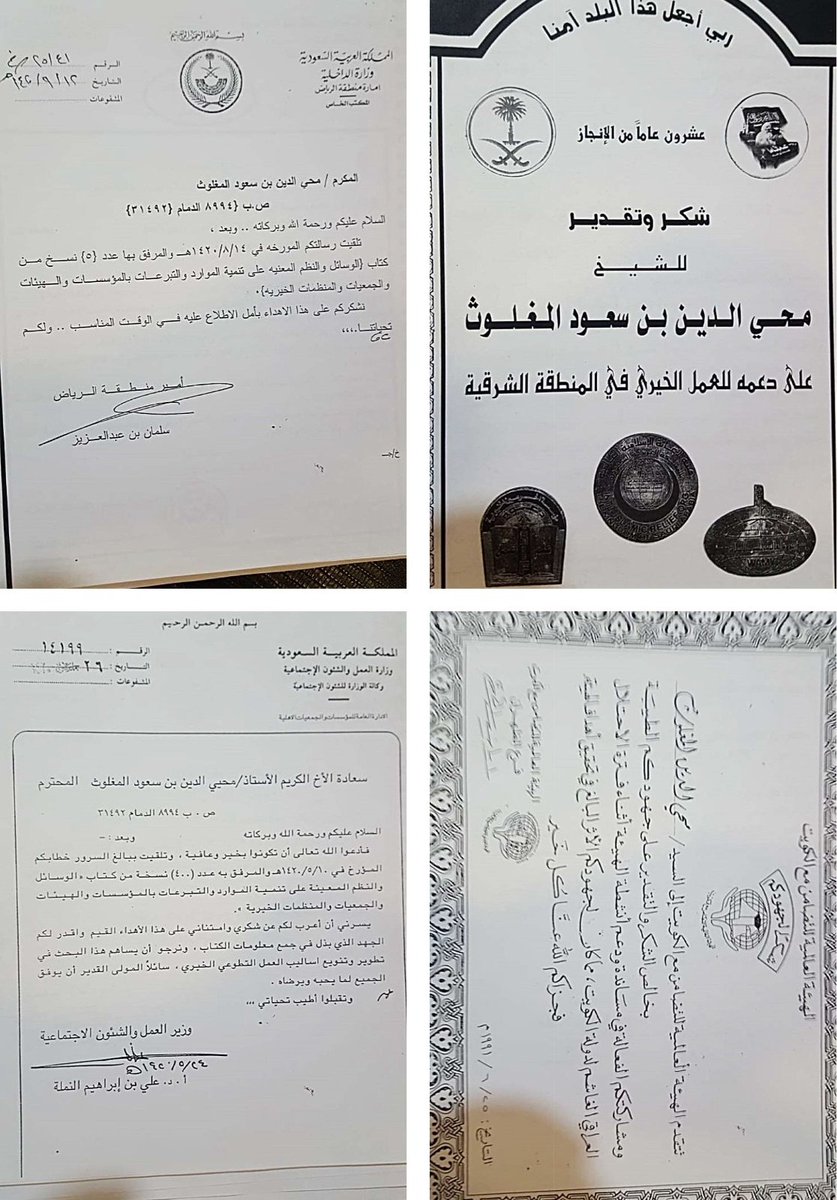 بسم الله الرحمن الرحيم
المملكة العربية السعودية
وزارة الداخلية
امارة منطقة الرياض
المكتب الخاص
الرقم
التاريخ ١٤٢٠/٩/١٢
المشفوعات
المكرم / محي الدين بن سعود المغلوث
ص.ب {٨٩٩٤ الدمام {٣١٤٩٢}
السلام عليكم ورحمة الله وبركاته .. وبعد ،
تلقيت رسالتكم المورخه في ١٤٢٠/٨/١٤هـ والمرفق بها عدد {٥} نسخ من
كتاب {الوسائل والنظم المعنيه على تنمية الموارد والتبرعات بالمؤسسات والهيئات
والجمعيات والمنظمات الخيريه}.
نشكركم على هذا الاهداء بأمل الاطلاع عليه في الوقت المناسب .. ولكم
تحياتنا،،،،
أمير منطقة الرياض
سلمان بن عبدالعزيز
خ/جـ
ربي أجعل هذا البلد آمنا
عشرون عاماً من الإنجاز
شكر وتقدير
للشيخ
محي الدين بن سعود المغلوث
على دعمه للعمل الخيري في المنطقة الشرقية
بسم الله الرحمن الرحيم
المملكة العربية السعودية
وزارة العمل والشئون الإجتماعية
وكالة الوزارة للشئون الإجتماعية
الادارة العامة للمؤسسات والجمعيات الاهلية
الرقم : ١٤١٩٩
التاريخ : ٢٦
المشفوعات :
سعادة الأخ الكريم الأستاذ/محيي الدين بن سعود المغلوث المحترم
ص . ب ٨٩٩٤ الدمام ٣١٤٩٢
السلام عليكم ورحمة الله وبركاته وبعد : -
فأدعوا الله تعالى أن تكونوا بخير وعافية ، وتلقيت ببالغ السرور خطابكم
المؤرخ في ١٤٢٠/٥/١٠هـ والمرفق به عدد (٤٠٠) نسخة من كتاب « الوسائل
والنظم المعينة على تنمية الموارد والتبرعات بالمؤسسات والهيئات
والجمعيات والمنظمات الخيرية » .
يسرني أن أعرب لكم عن شكري وامتناني على هذا الأهداء القيم واقدر لكم
الجهد الذي بذل في جمع معلومات الكتاب ، ونرجو أن يساهم هذا البحث في
تطوير وتنويع اساليب العمل التطوعي الخيري ، سائلاً المولى القدير أن يوفق
الجميع لما يحبه ويرضاه .
وتقبلوا أطيب تحياتي ،،،
وزير العمل والشئون الاجتماعية
١٤٢٠/٥/٢٤هـ
أ.د. علي بن إبراهيم النملة
الهيئة العالمية للتضامن مع الكويت
شكراً لجهودكم
تتقدم الهيئة العالمية للتضامن مع الكويت إلى السيد / محي الدين المغلوث
بخالص الشكر والتقدير على جهودكم الطيبة
ومشاركتكم الفعالة في مساندة ودعم أنشطة الهيئة أثناء فترة الاحتلال
العراقي الغاشم لدولة الكويت ، مما كان لجهودكم الأثر البالغ في تحقيق أهداف الهيئة
فجزاكم الله عنا كل خير
الهيئة العالمية للتضامن مع الكويت
التاريخ : ١٩٩١/٦/٢٥م